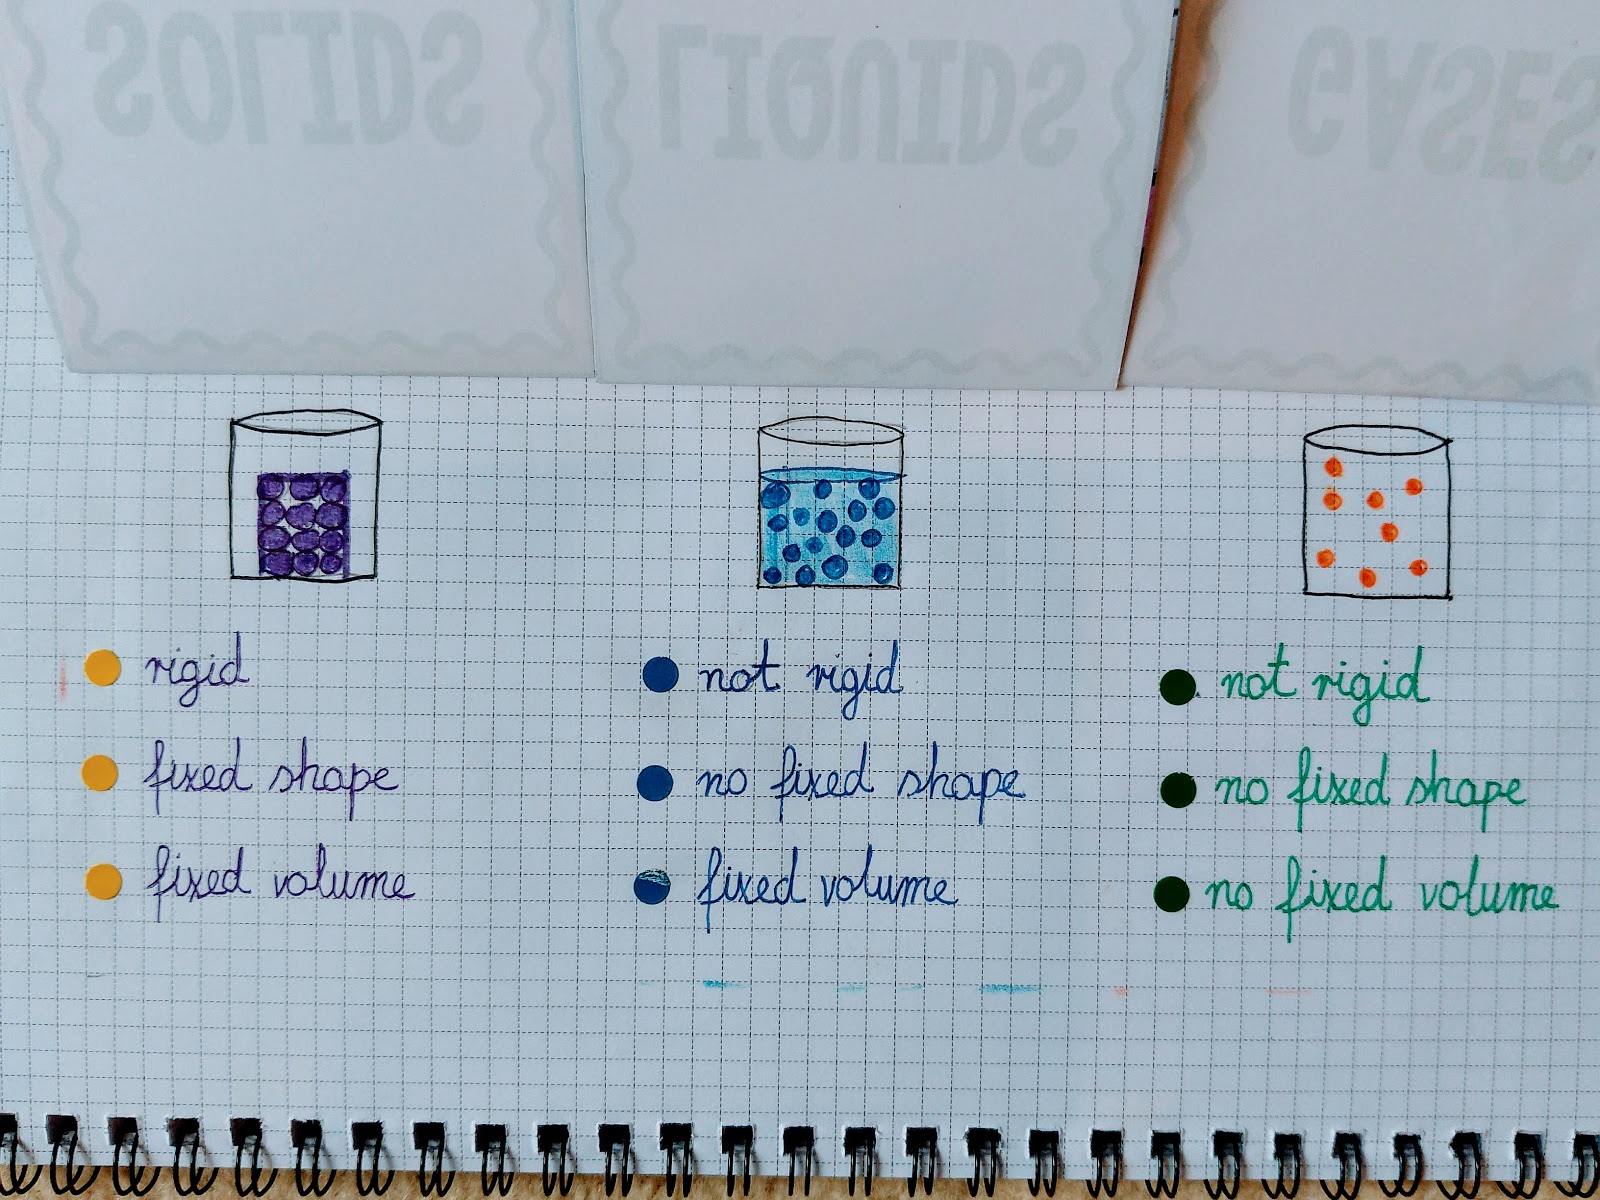 SOLIDS
LIQUIDS
GASES
rigid
fixed shape
fixed volume
not rigid
no fixed shape
fixed volume
not rigid
no fixed shape
no fixed volume